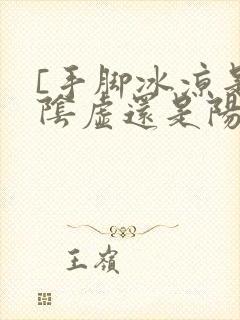 [手脚冰凉是
陰虛還是陽
王嶺